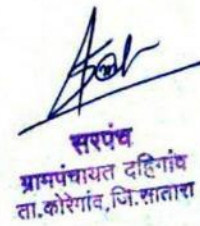 सरपंच
ग्रामपंचायत दहिगांव
ता.कोरेगांव,जि.सातारा